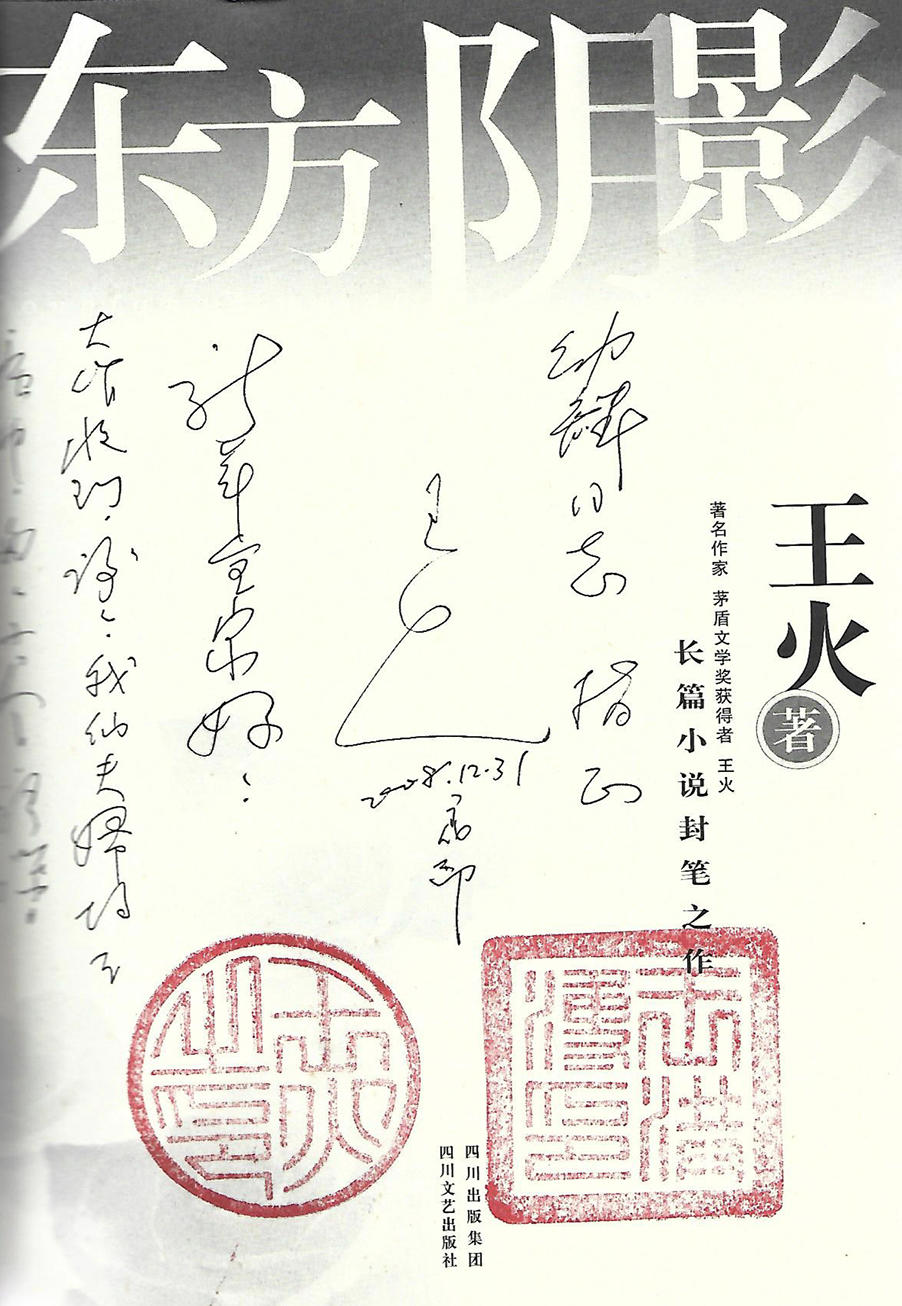 东方阴影
王火
著
著名作家 茅盾文学奖获得者 王火
长篇小说封笔之作
同志 指正
王火
2008.12.31
成都
新年全家好！
大作收到，谢谢！我们夫妇均
王洪溥印
王火之印
四川出版集团
四川文艺出版社